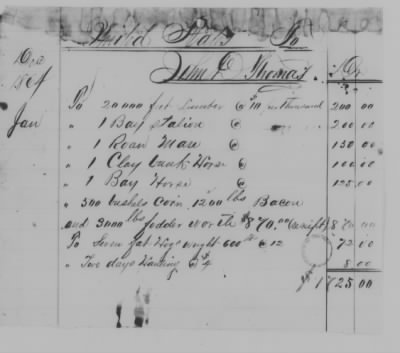 United States To
John D Thomas. Dr
Jan
To 20000 feet Lumber @ $10 per thousand 200 00
" 1 Bay Stalion @ 200.00
" 1 Roan Mare @ 150 00
" 1 Clay bank Horse @ 100.00
" 1 Bay Horse @ 125.00
" 300 bushels Corn 1200 lbs Bacon
and 3000 lbs fodder worth $870.00 (in gift) 870.00
To Seven fat Hogs weight 600 lbs @ 12 72.00
" Two days Hauling @ $4 8.00
$1725.00